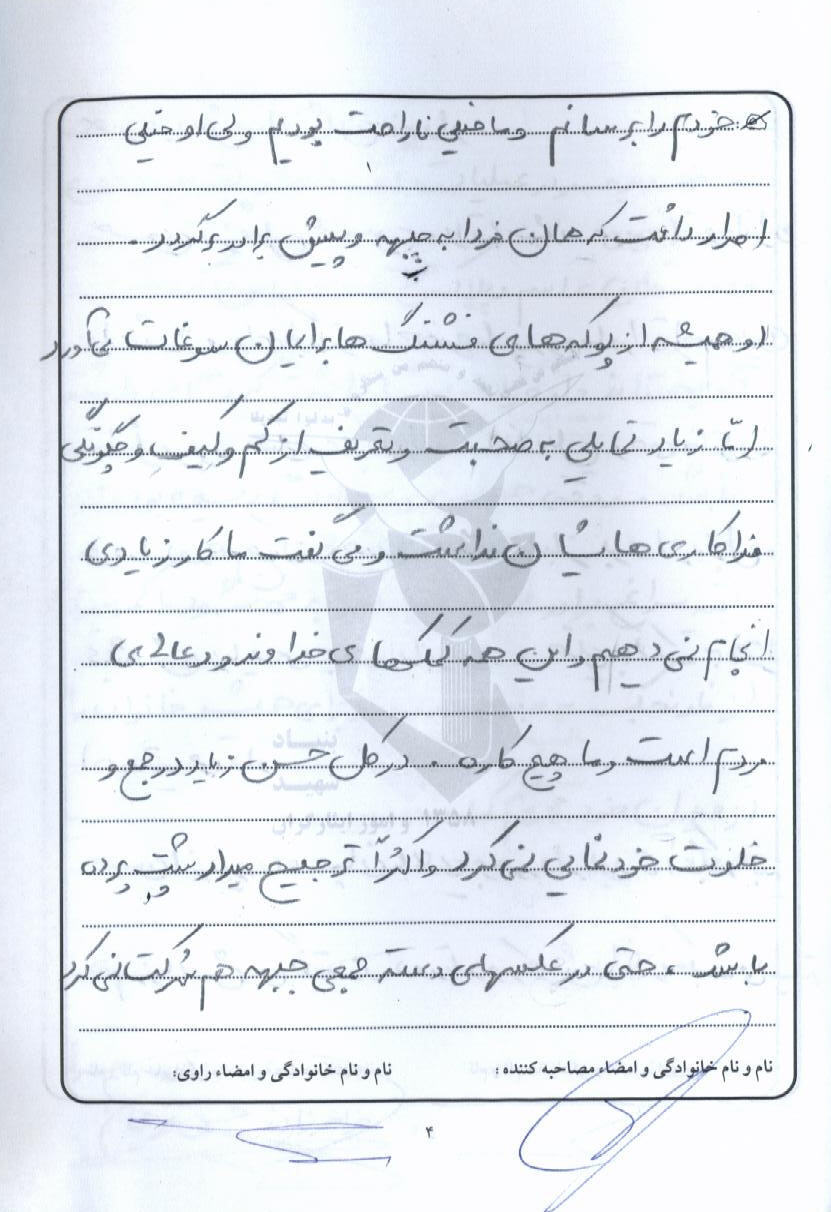 خودم را برسانم وما خیلی ناراحت بودیم ولی او خیلی
اصرار داشت که همان فردا به جبهه و پیش برادر برگردد.
او همیشه از پوکه های فشنگ ها برایمان سوغات می آورد
امّا زیاد تمایلی به صحبت و تعریف از کم و کیف و چگونگی
فداکاری هایشان نداشت و می گفت ما کار زیادی
انجام نمی دهیم و این همه کمکهای خداوند و دعای
مردم است وما هیچ کاره. در کل حسن زیاد در جمع و
خلوت خودنمایی نمی کرد و اکثراً ترجیح میداد پشت پرده
باشد، حتی در عکسهای دسته جمعی جبهه هم شرکت نمی کرد
بنیاد
شهید
و امور ایثارگران ۱۳۵۸
نام و نام خانوادگی و امضاء مصاحبه کننده : نام و نام خانوادگی و امضاء راوی:
۴